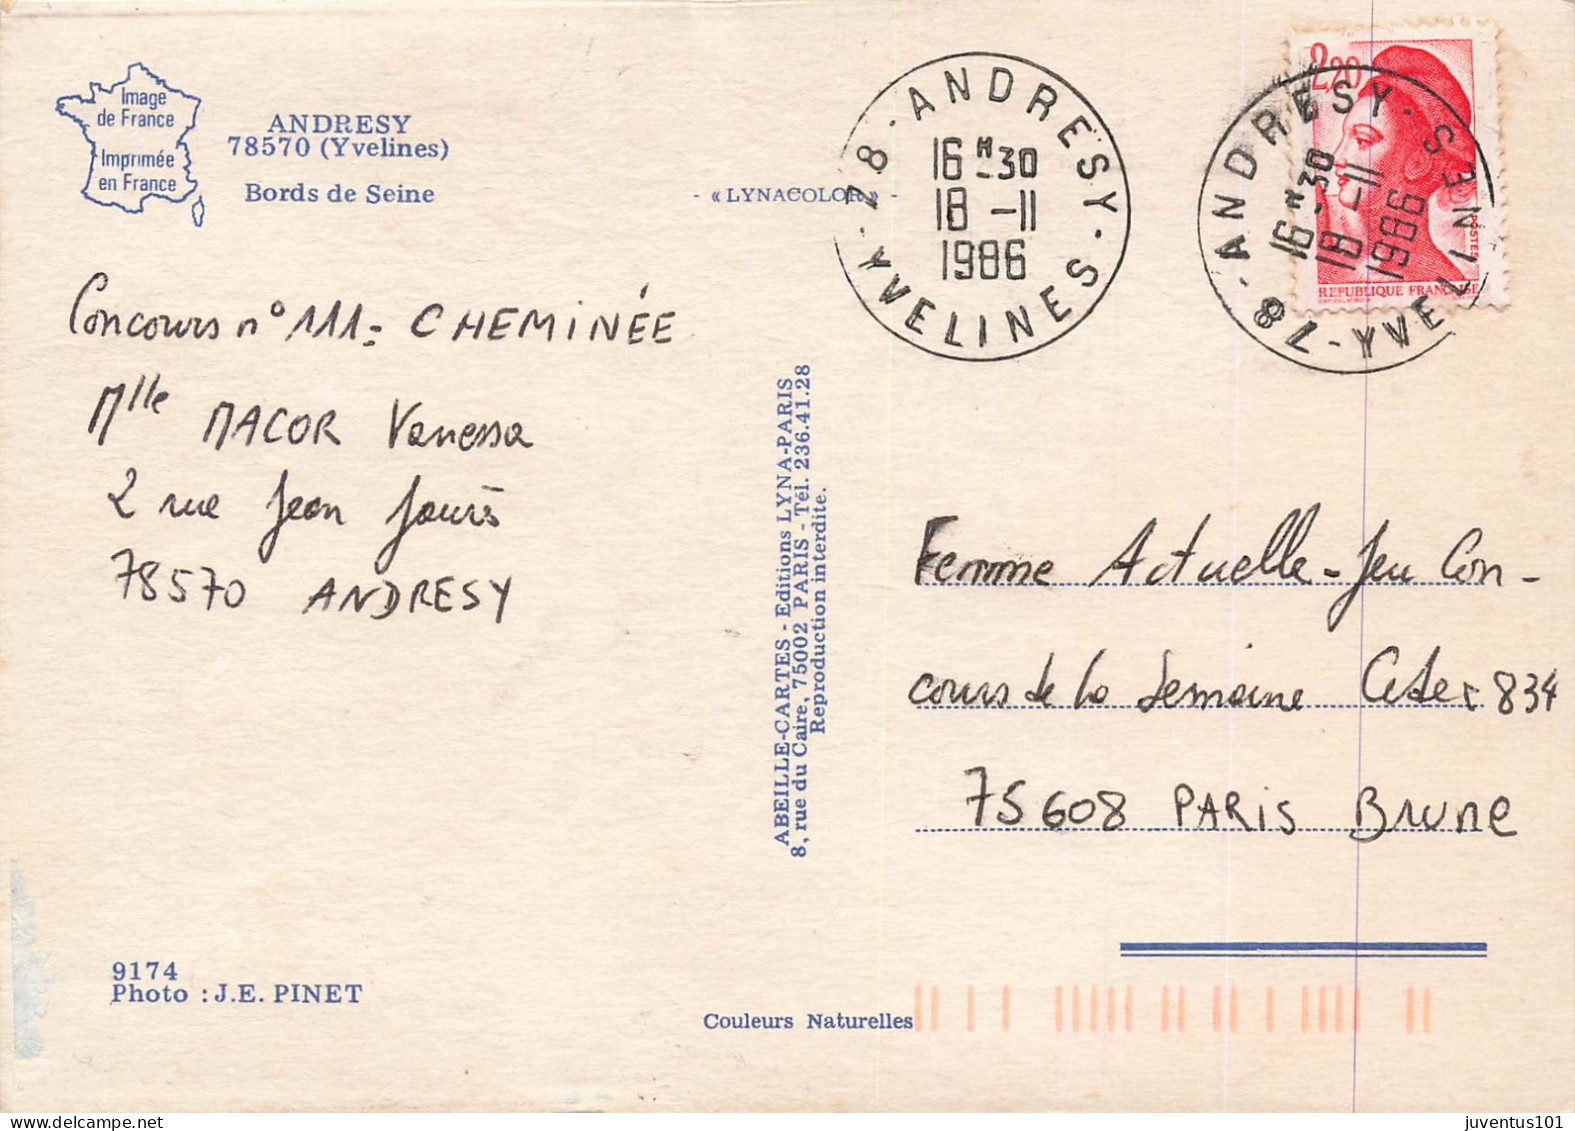 Image
de France
Imprimée
en France
ANDRESY
78570 (Yvelines)
Bords de Seine
- « LYNACOLOR » -
78 - ANDRESY - YVELINES
16 H 30
18 -11
1986
2,20
POSTES
REPUBLIQUE FRANÇAISE
78 - ANDRESY - YVELINES
16 H 30
18 -11
1986
Concours n° 111 = CHEMINÉE
Mlle MACOR Vanessa
2 rue Jean Jaurès
78570 ANDRESY
ABEILLE-CARTES - Editions LYNA-PARIS
8, rue du Caire, 75002 PARIS - Tél. 236.41.28
Reproduction interdite.
Femme Actuelle - Jeu Con-
cours de la Semaine Cedex 834
75608 PARIS BRUNE
9174
Photo : J.E. PINET
Couleurs Naturelles
juventus101